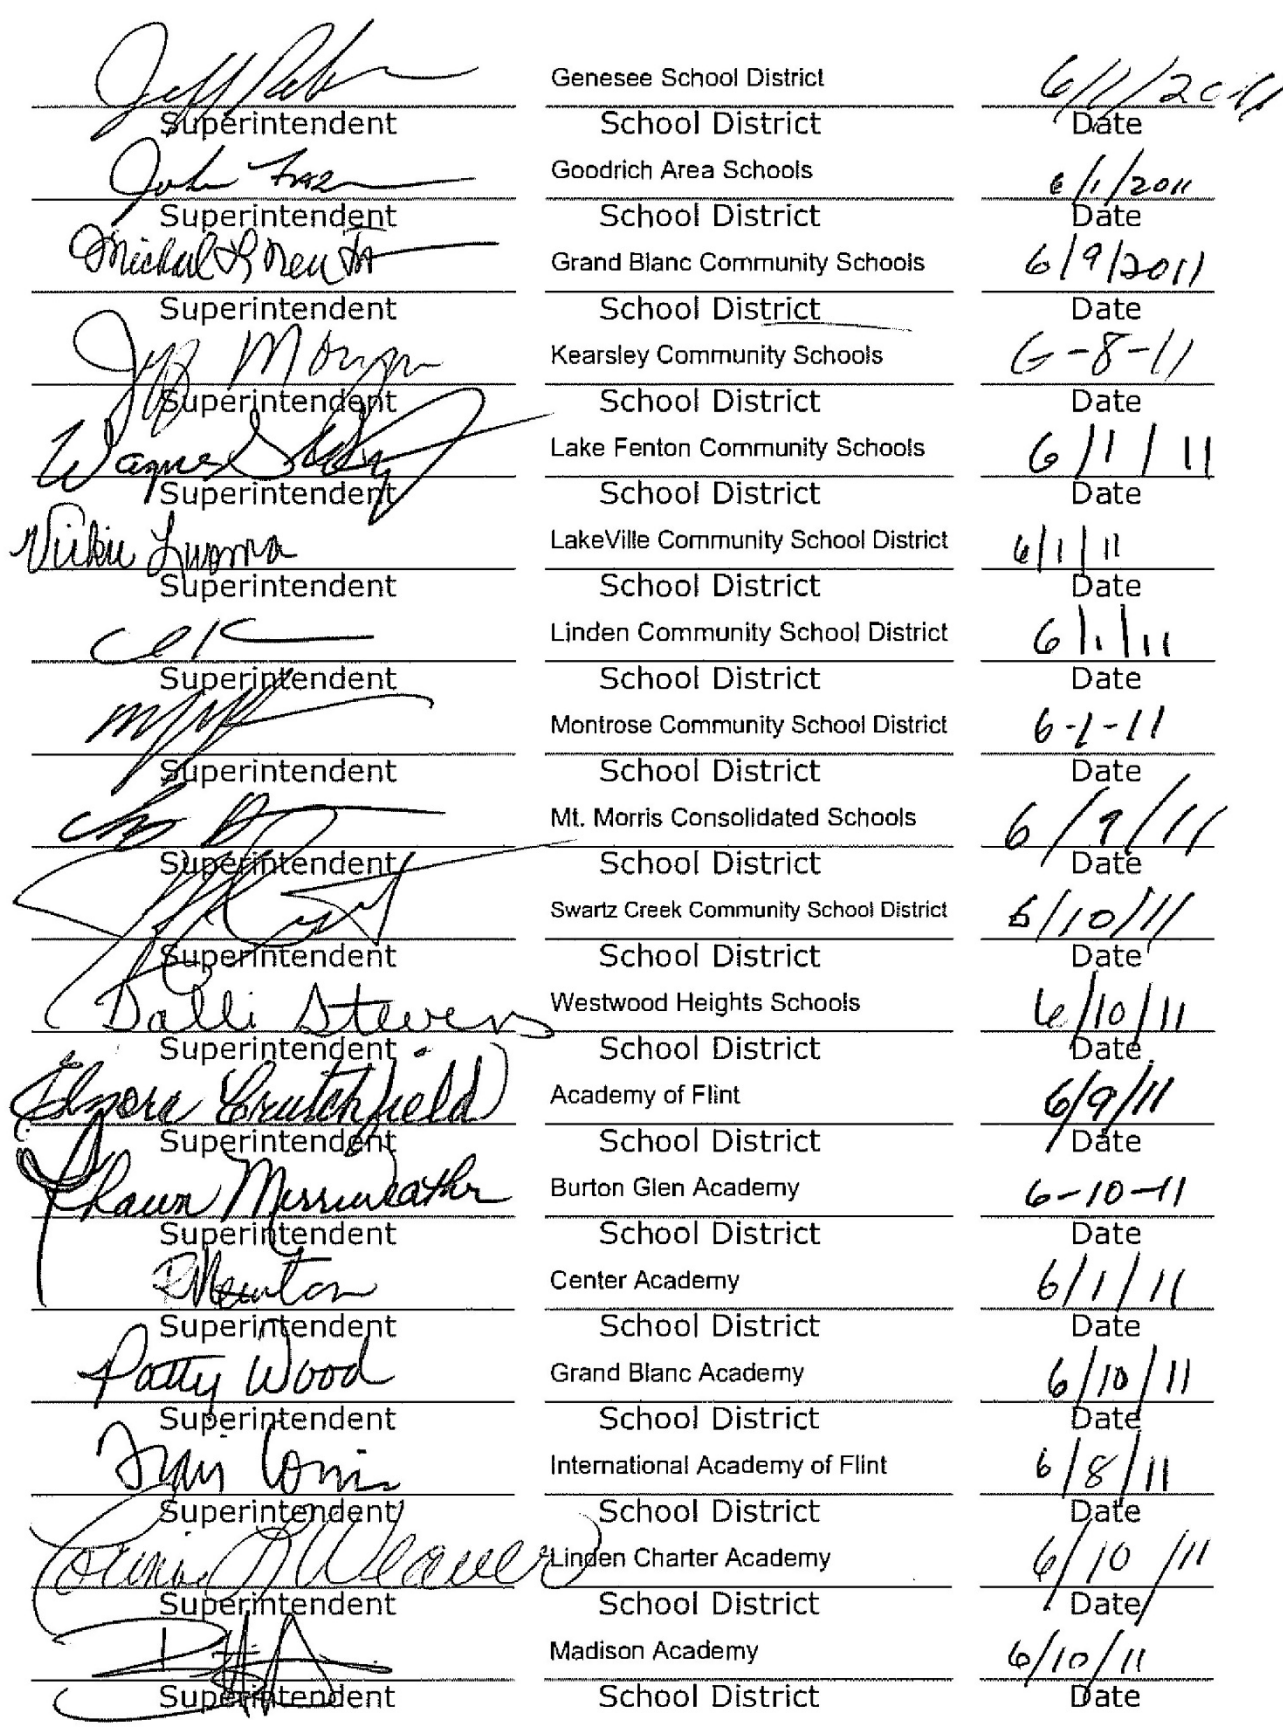 Jeff Genesee School District 6/1/2011
Superintendent School District Date
John Goodrich Area Schools 6/1/2011
Superintendent School District Date
Michael Grand Blanc Community Schools 6/9/2011
Superintendent School District Date
Jeff Morgan Kearsley Community Schools 6-8-11
Superintendent School District Date
Wayne Lake Fenton Community Schools 6/1/11
Superintendent School District Date
Vickie Luoma LakeVille Community School District 6/1/11
Superintendent School District Date
Linden Community School District 6/1/11
Superintendent School District Date
Montrose Community School District 6-1-11
Superintendent School District Date
Mt. Morris Consolidated Schools 6/9/11
Superintendent School District Date
Swartz Creek Community School District 6/10/11
Superintendent School District Date
Stevens Westwood Heights Schools 6/10/11
Superintendent School District Date
Elnora Crutchfield Academy of Flint 6/9/11
Superintendent School District Date
Shawn Merriweather Burton Glen Academy 6-10-11
Superintendent School District Date
Newton Center Academy 6/1/11
Superintendent School District Date
Patty Wood Grand Blanc Academy 6/10/11
Superintendent School District Date
International Academy of Flint 6/8/11
Superintendent School District Date
Weaver Linden Charter Academy 6/10/11
Superintendent School District Date
Madison Academy 6/10/11
Superintendent School District Date